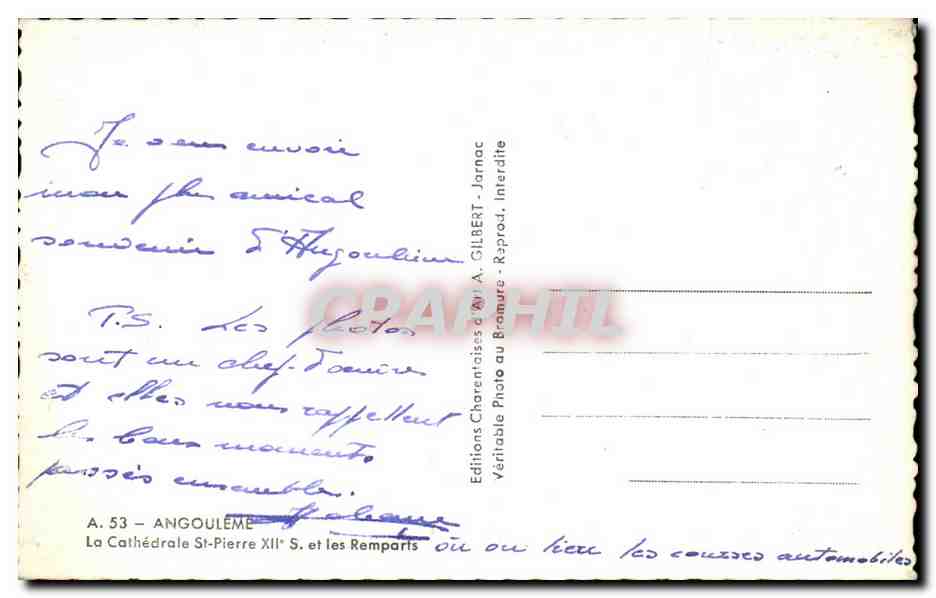 Je vous envoie
mon plus amical
souvenir d'Angoulême
P.S. Les photos
sont un chef-d'œuvre
et elles nous rappellent
les bons moments
passés ensemble.
A. 53 – ANGOULÊME
La Cathédrale St-Pierre XIIe S. et les Remparts
où on lieu les courses automobiles
Editions Charentaises d'Art A. GILBERT - Jarnac
Véritable Photo au Bromure - Reprod. Interdite
CPAPHIL